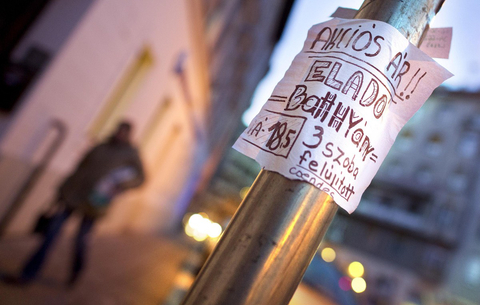 AKCIÓS ÁR!!
ELADÓ
=BattHYány=
IÁ: 18,5
3 szoba
felújított
csendes